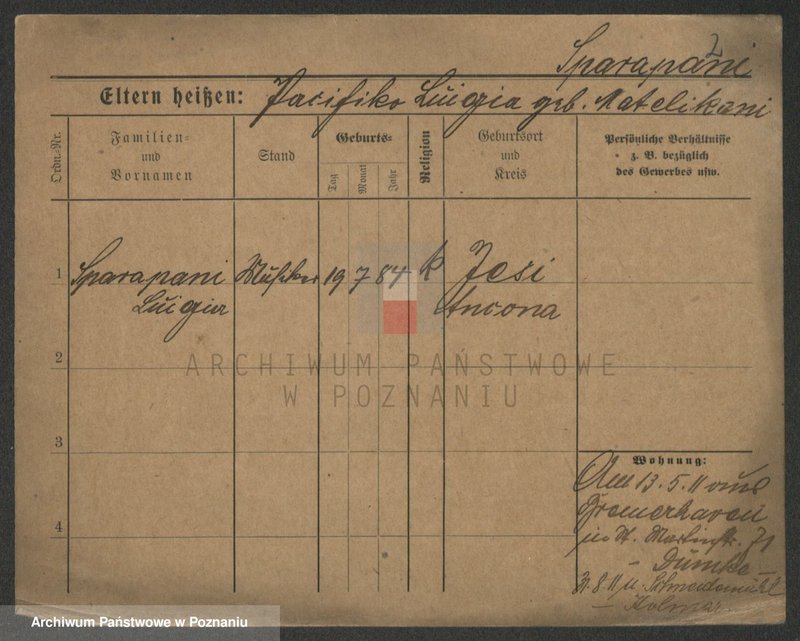 2
Sparapani
Eltern heißen: Pacifiko Luigia geb. Matelikani
Ordn.-Nr.
Familien-
und
Vornamen
Stand
Geburts-
Tag
Monat
Jahr
Religion
Geburtsort
und
Kreis
Persönliche Verhältnisse
z. B. bezüglich
des Gewerbes usw.
1
Sparapani Musiker 19 7 84 k Jesi
Luigia Ancona
ARCHIWUM PAŃSTWOWE
W POZNANIU
2
3
4
Wohnung:
Am 13.5.11 aus
Bremerhaven
in St. Martinstr. 71
- Dümke -
31.8.11 n. Schneidemühl
- Kolmar -
Archiwum Państwowe w Poznaniu